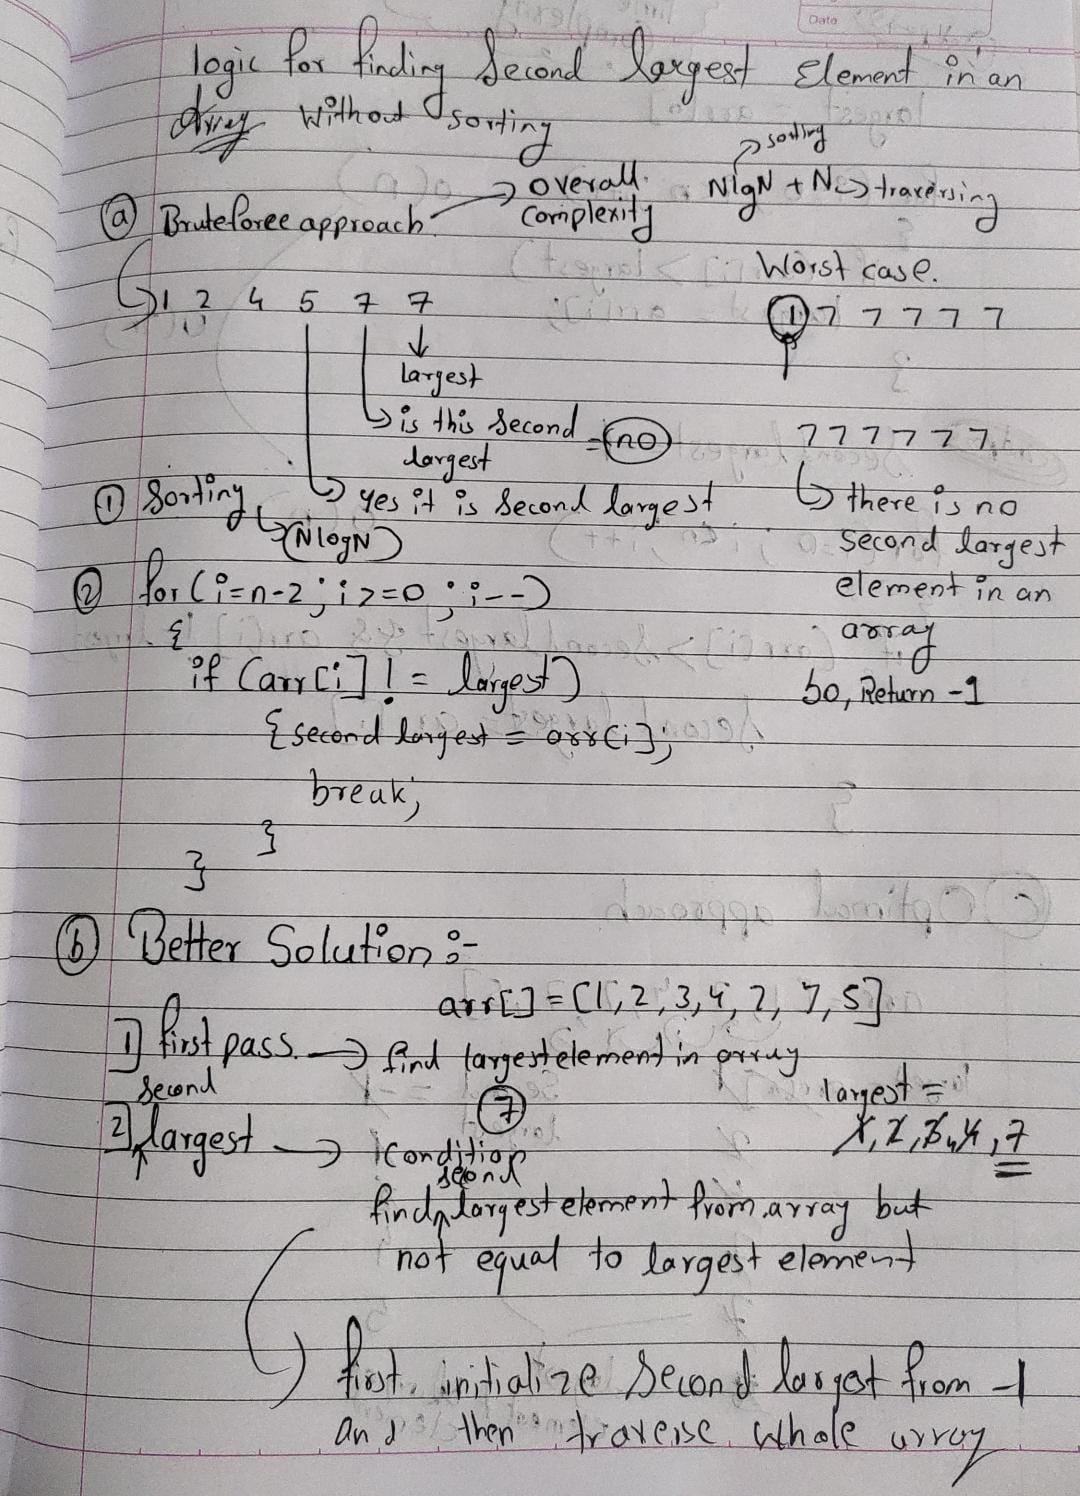 Date
logic for finding Second largest Element in an
Array Without sorting
sorting
overall complexity
NlgN + N → traversing
ⓐ Bruteforce approach
Worst case.
1 2 4 5 7 7
1 7 7 7 7 7
largest
is this second largest = no
7 7 7 7 7 7
① Sorting
yes it is second largest
(NlogN)
there is no
second largest
element in an
array
so, Return -1
② for(i=n-2; i>=0; i--)
{
if (arr[i] != largest)
{second largest = arr[i];
break;
}
}
ⓑ Better Solution :-
arr[] = [1, 2, 3, 4, 7, 7, 5]
1] first pass. → find largest element in array
7
largest =
1, 2, 3, 4, 7
2] second largest → condition
find second largest element from array but
not equal to largest element
first initialize Second largest from -1
and then traverse whole array